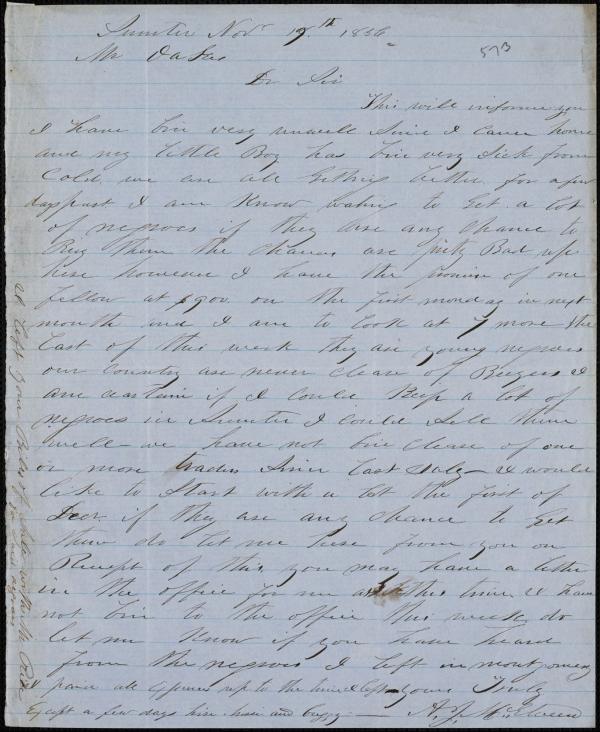 Sumter Nov 19th 1856
573
Mr Oakes
Dr Sir
This will informe you
I have bin very unwell Since I came home
and my little Boy has bin very Sick from
Cold. we are all Getting better. for a few
days past I am Know wating to Get a lot
of negroes if they are any chance to
Buy them the chances are prity Bad up
here however I have the promis of one
fellow at $900. on the first monday in next
month and I am to look at 7 more the
last of this week they are young negroes
our country are never cleare of Buyers I
am certain if I could Keep a lot of
negroes in Sumter I could Sell them
well - we have not bin cleare of one
or more traders Since last July - I would
like to Start with a lot the first of
Decr if they are any chance to Get
them do let me hear from you on
Recept of this you may have a letter
in the office for me at this time I have
not bin to the office this week do
let me Know if you have heard
from the negroes I left in montgomery
I paid all Expences up to the time I left - yours Truly
Except a few days hire hors and buggy - A. J. McElveen
I left your Bills of Sale with Mr